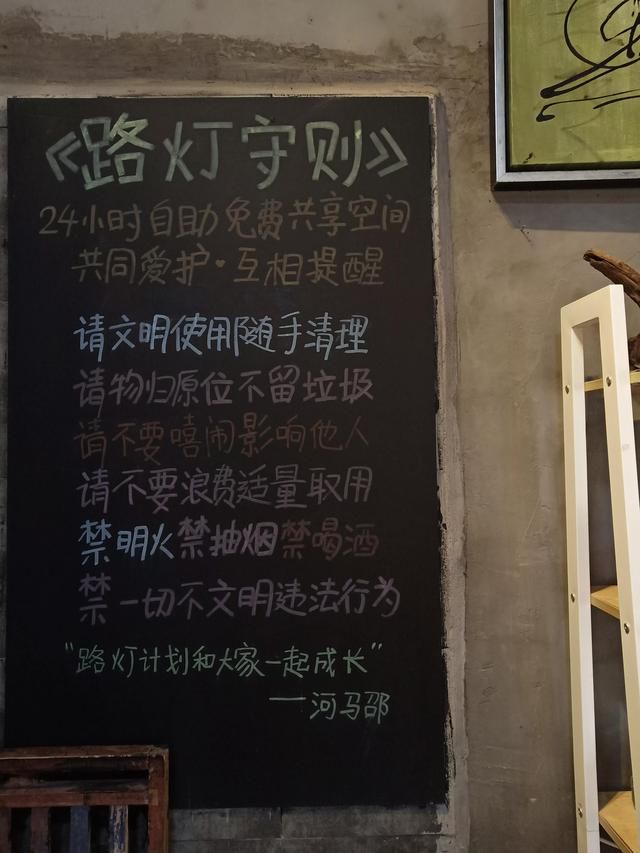 《路灯守则》
24小时自助免费共享空间
共同爱护·互相提醒
请文明使用随手清理
请物归原位不留垃圾
请不要嘻闹影响他人
请不要浪费适量取用
禁明火禁抽烟禁喝酒
禁一切不文明违法行为
“路灯计划和大家一起成长”
——河马邵